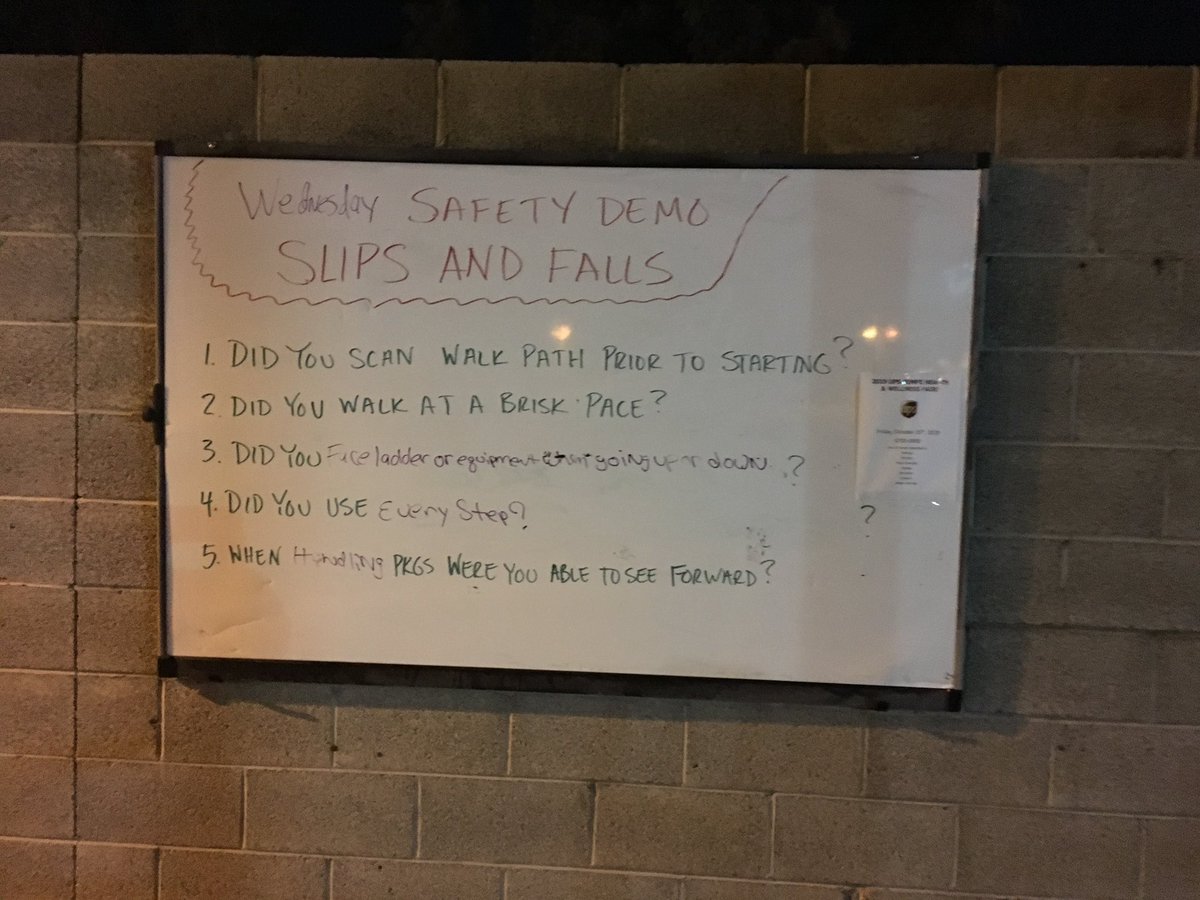 Wednesday SAFETY DEMO
SLIPS AND FALLS
1. DID YOU SCAN WALK PATH PRIOR TO STARTING?
2. DID YOU WALK AT A BRISK PACE?
3. DID YOU Face ladder or equipment going up or down?
4. DID YOU USE Every Step?
?
5. WHEN Handling PKGS WERE YOU ABLE TO SEE FORWARD?
& WELLNESS FAIR